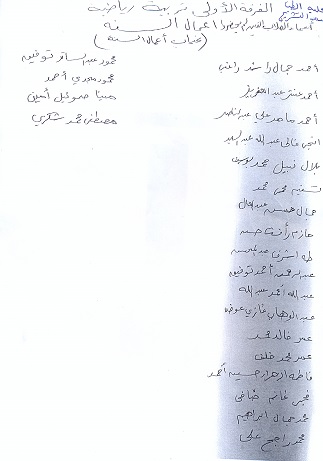 كلية الطب
الفرقة الأولى تربية رياضية
أسماء الطلاب الذين لم يحضروا أعمال السنة
(غياب أعمال السنة)
أحمد جمال راشد راغب
أحمد عنتر عبد العزيز
أحمد ماهر علي عبد الناصر
فالح عبد الله عبد السيد
بلال نبيل محمد
محي محمد
جمال حسين عبد العال
حازم رأفت حسن
طه اشرف
عبد الرحمن أحمد توفيق
عبد الله أحمد عبد الله
عبد الوهاب غازي عوض
عمر خالد محمد
عمر محمد خلف
فاطمة الزهراء حسين أحمد
فجر غانم
محمد جمال ابراهيم
محمد راجح علي
محمود عبد الساتر توفيق
محمود مجدي أحمد
مينا صموئيل أمين
مصطفى محمد شكري